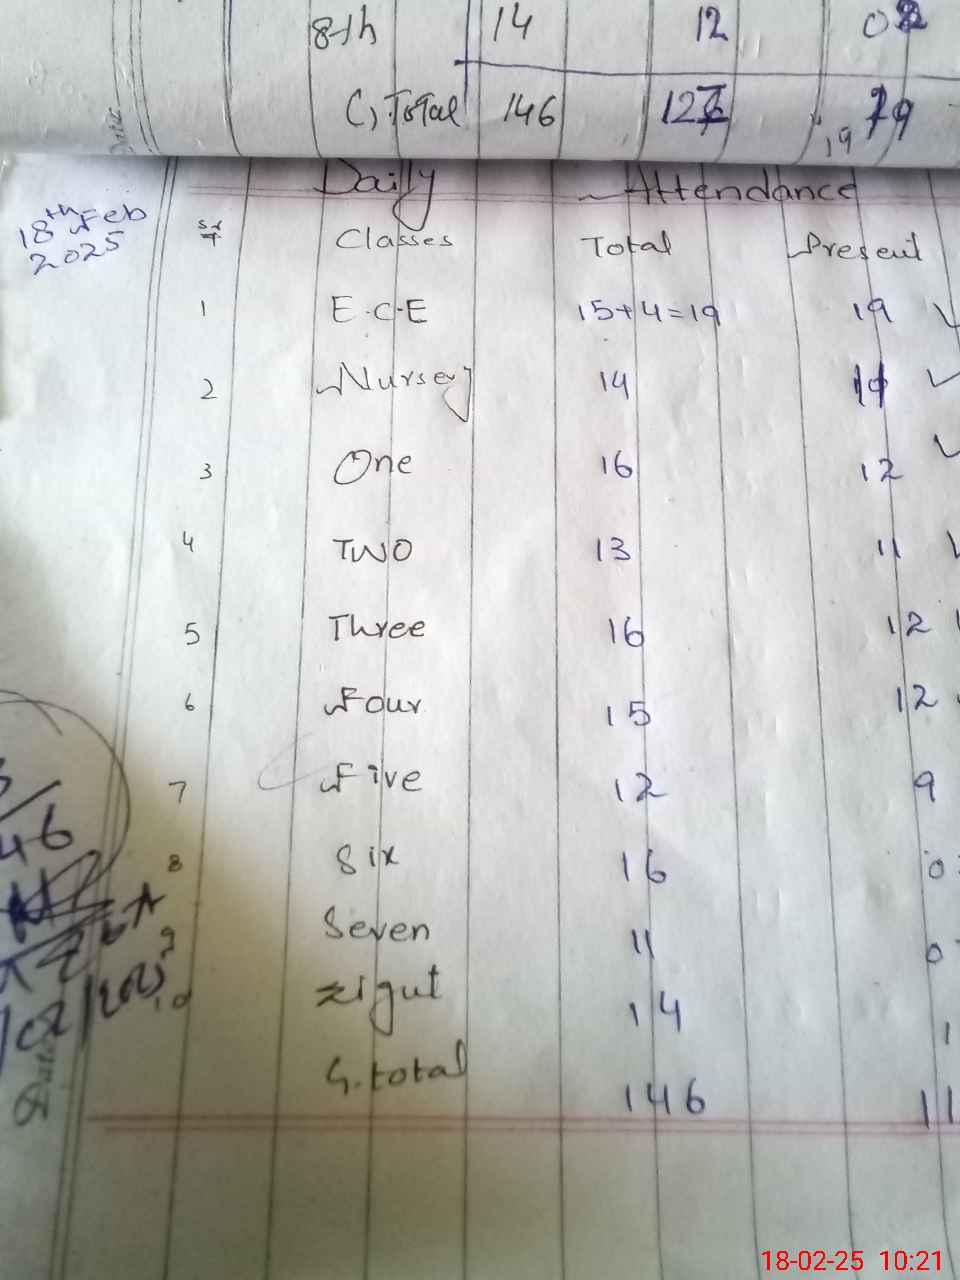 8th 14 12
C, Total 146 19
Daily Attendance
18th Feb
2025
Sr# Classes Total Present
1 E.C.E 15+4=19 19
2 Nursery 14 11
3 One 16 12
4 TWO 13 11
5 Three 16 12
6 Four 15 12
7 Five 12 9
8 Six 16
9 Seven 11
10 Eigut 14
G.total 146
Date
18-02-25 10:21